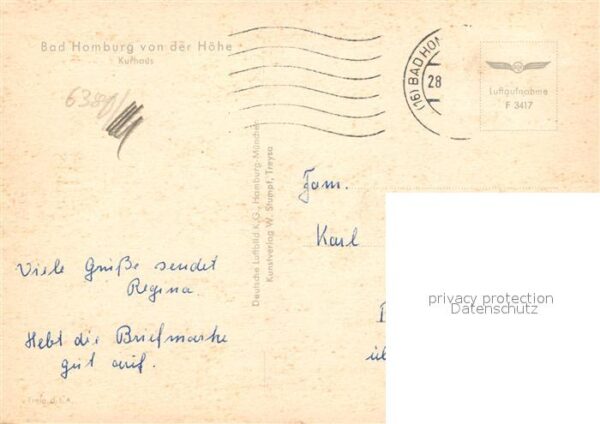 Bad Homburg von der Höhe
Kurhaus
6380/
(16) BAD HOM
28
Luftaufnahme
F 3417
Deutsche Luftbild K.G., Hamburg-München
Kunstverlag W. Stumpf, Treysa
Viele Grüße sendet
Regina.
Hebt die Briefmarke
gut auf.
Fam.
Karl
üb
privacy protection
Datenschutz